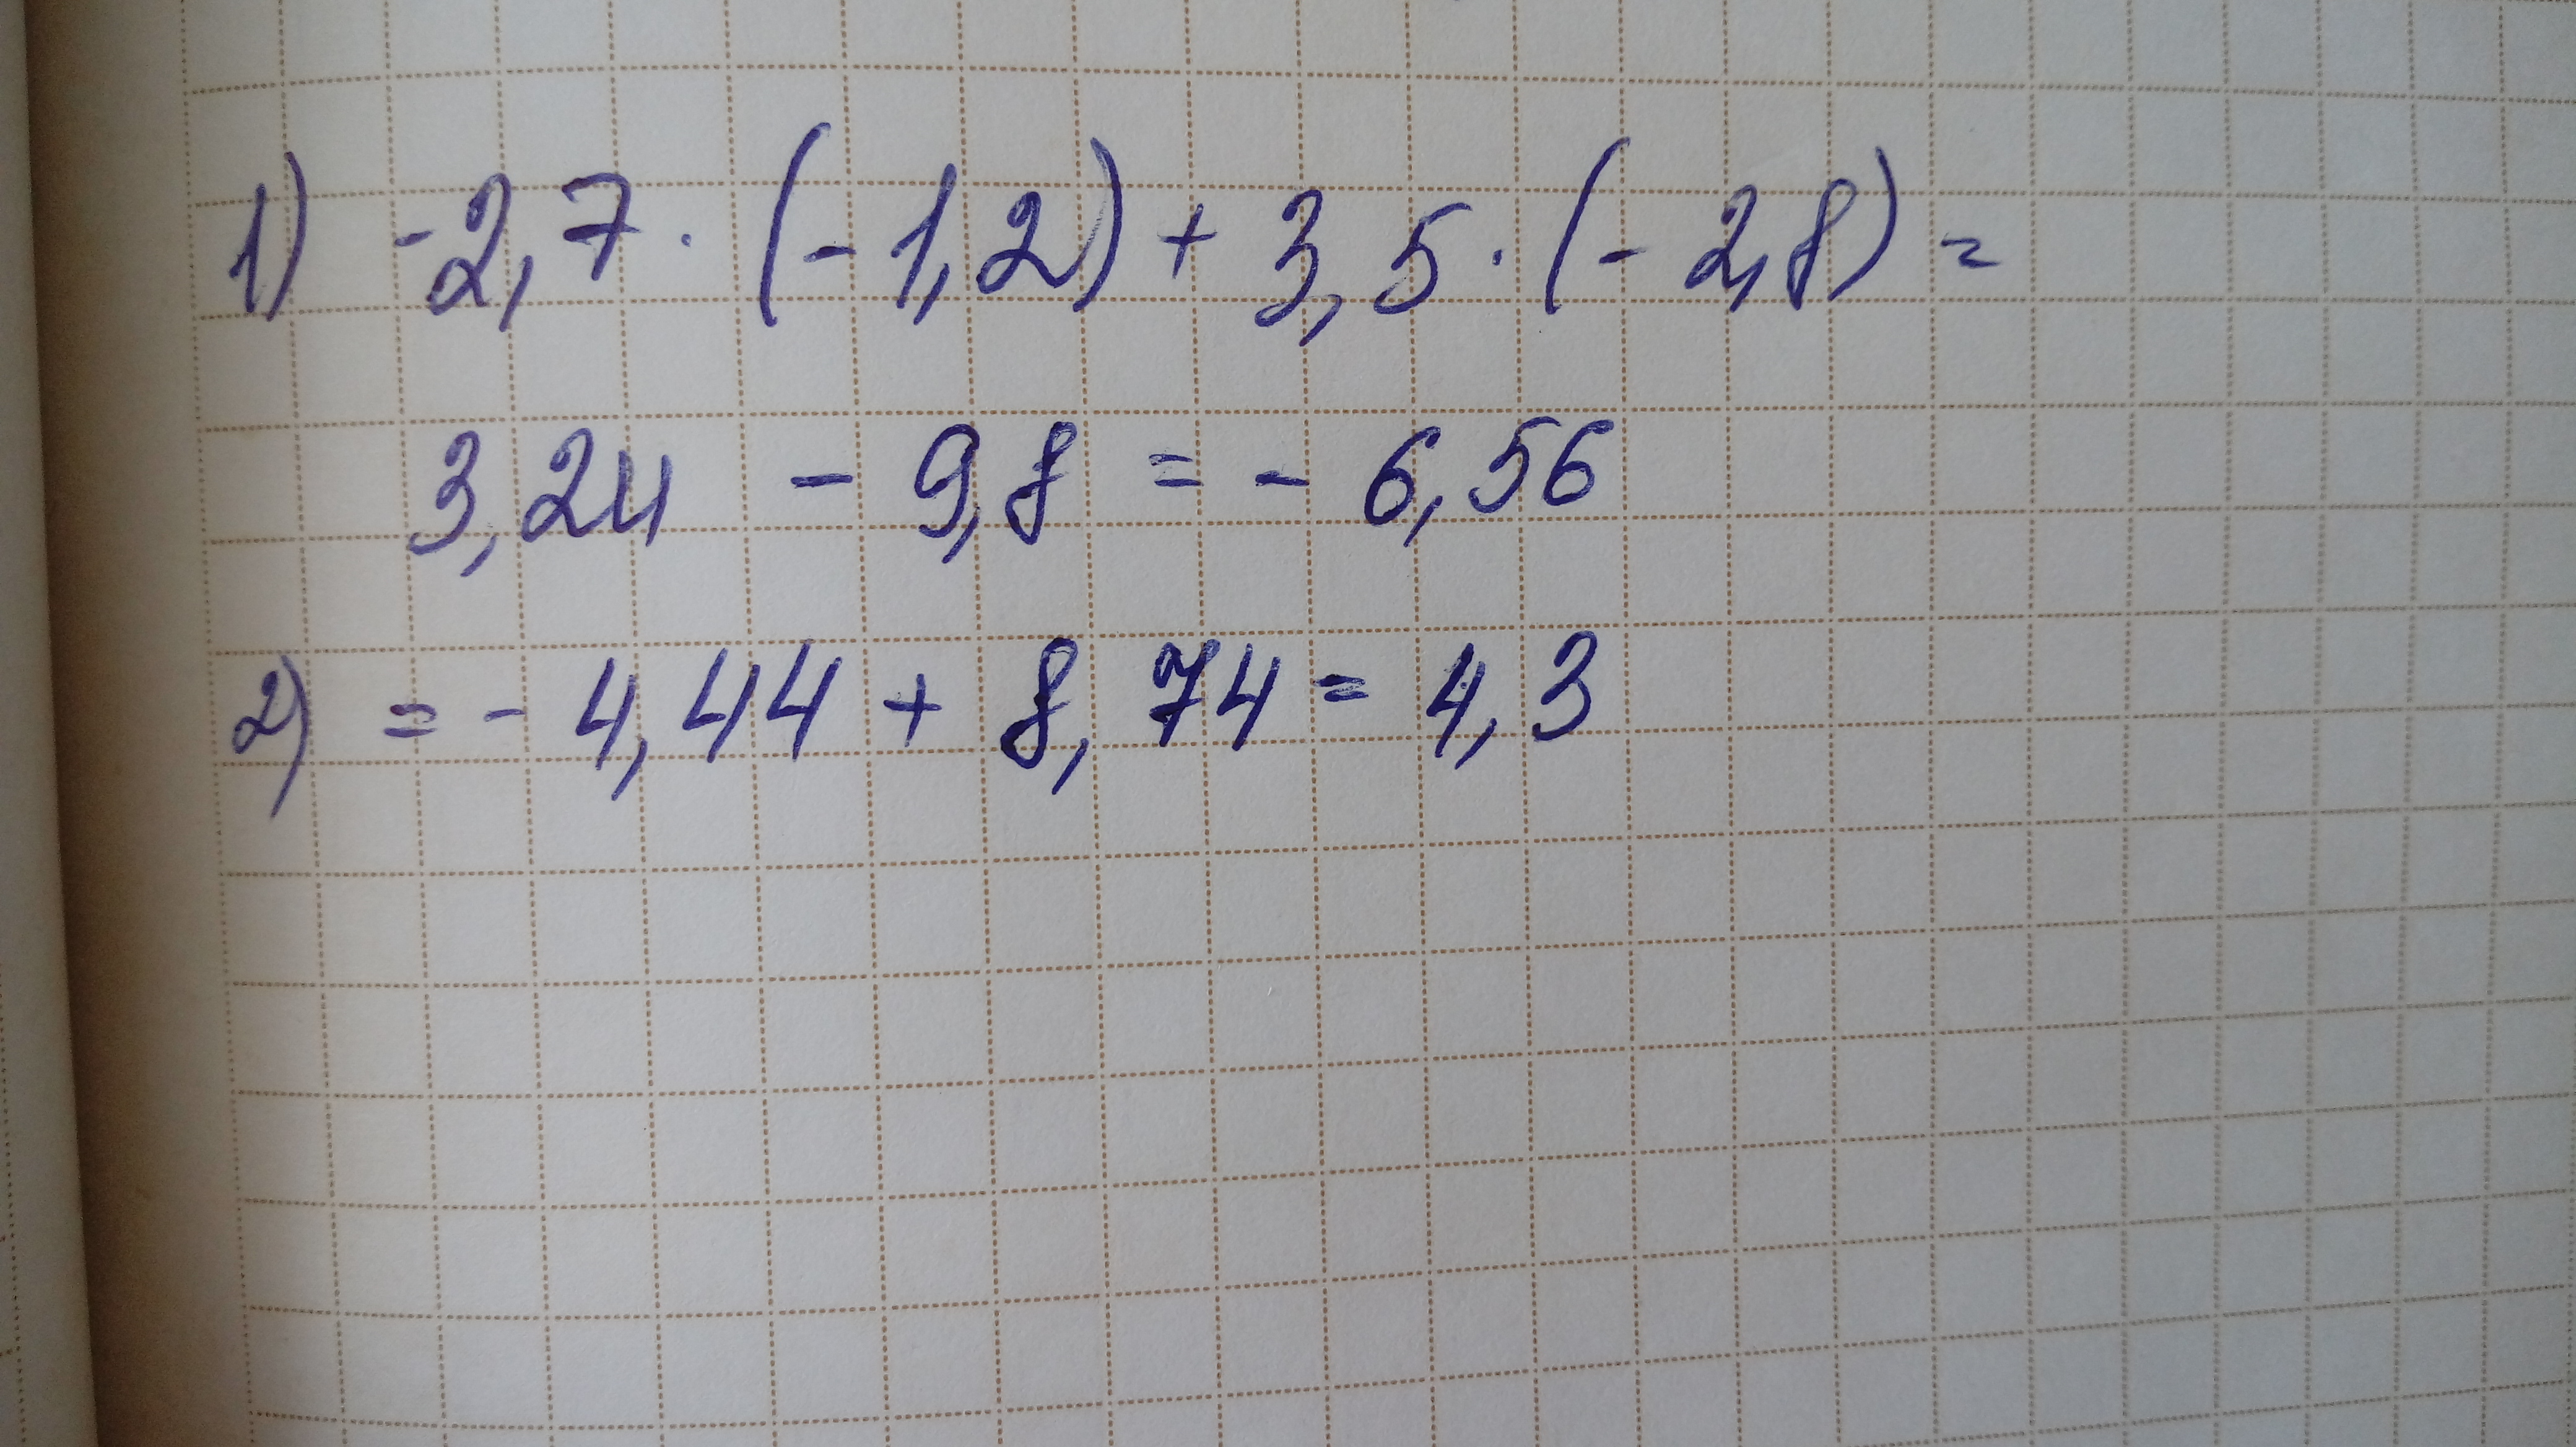 1) -2,7 · (-1,2) + 3,5 · (- 2,8) =
3,24 - 9,8 = - 6,56
2) = - 4,44 + 8,74 = 4,3